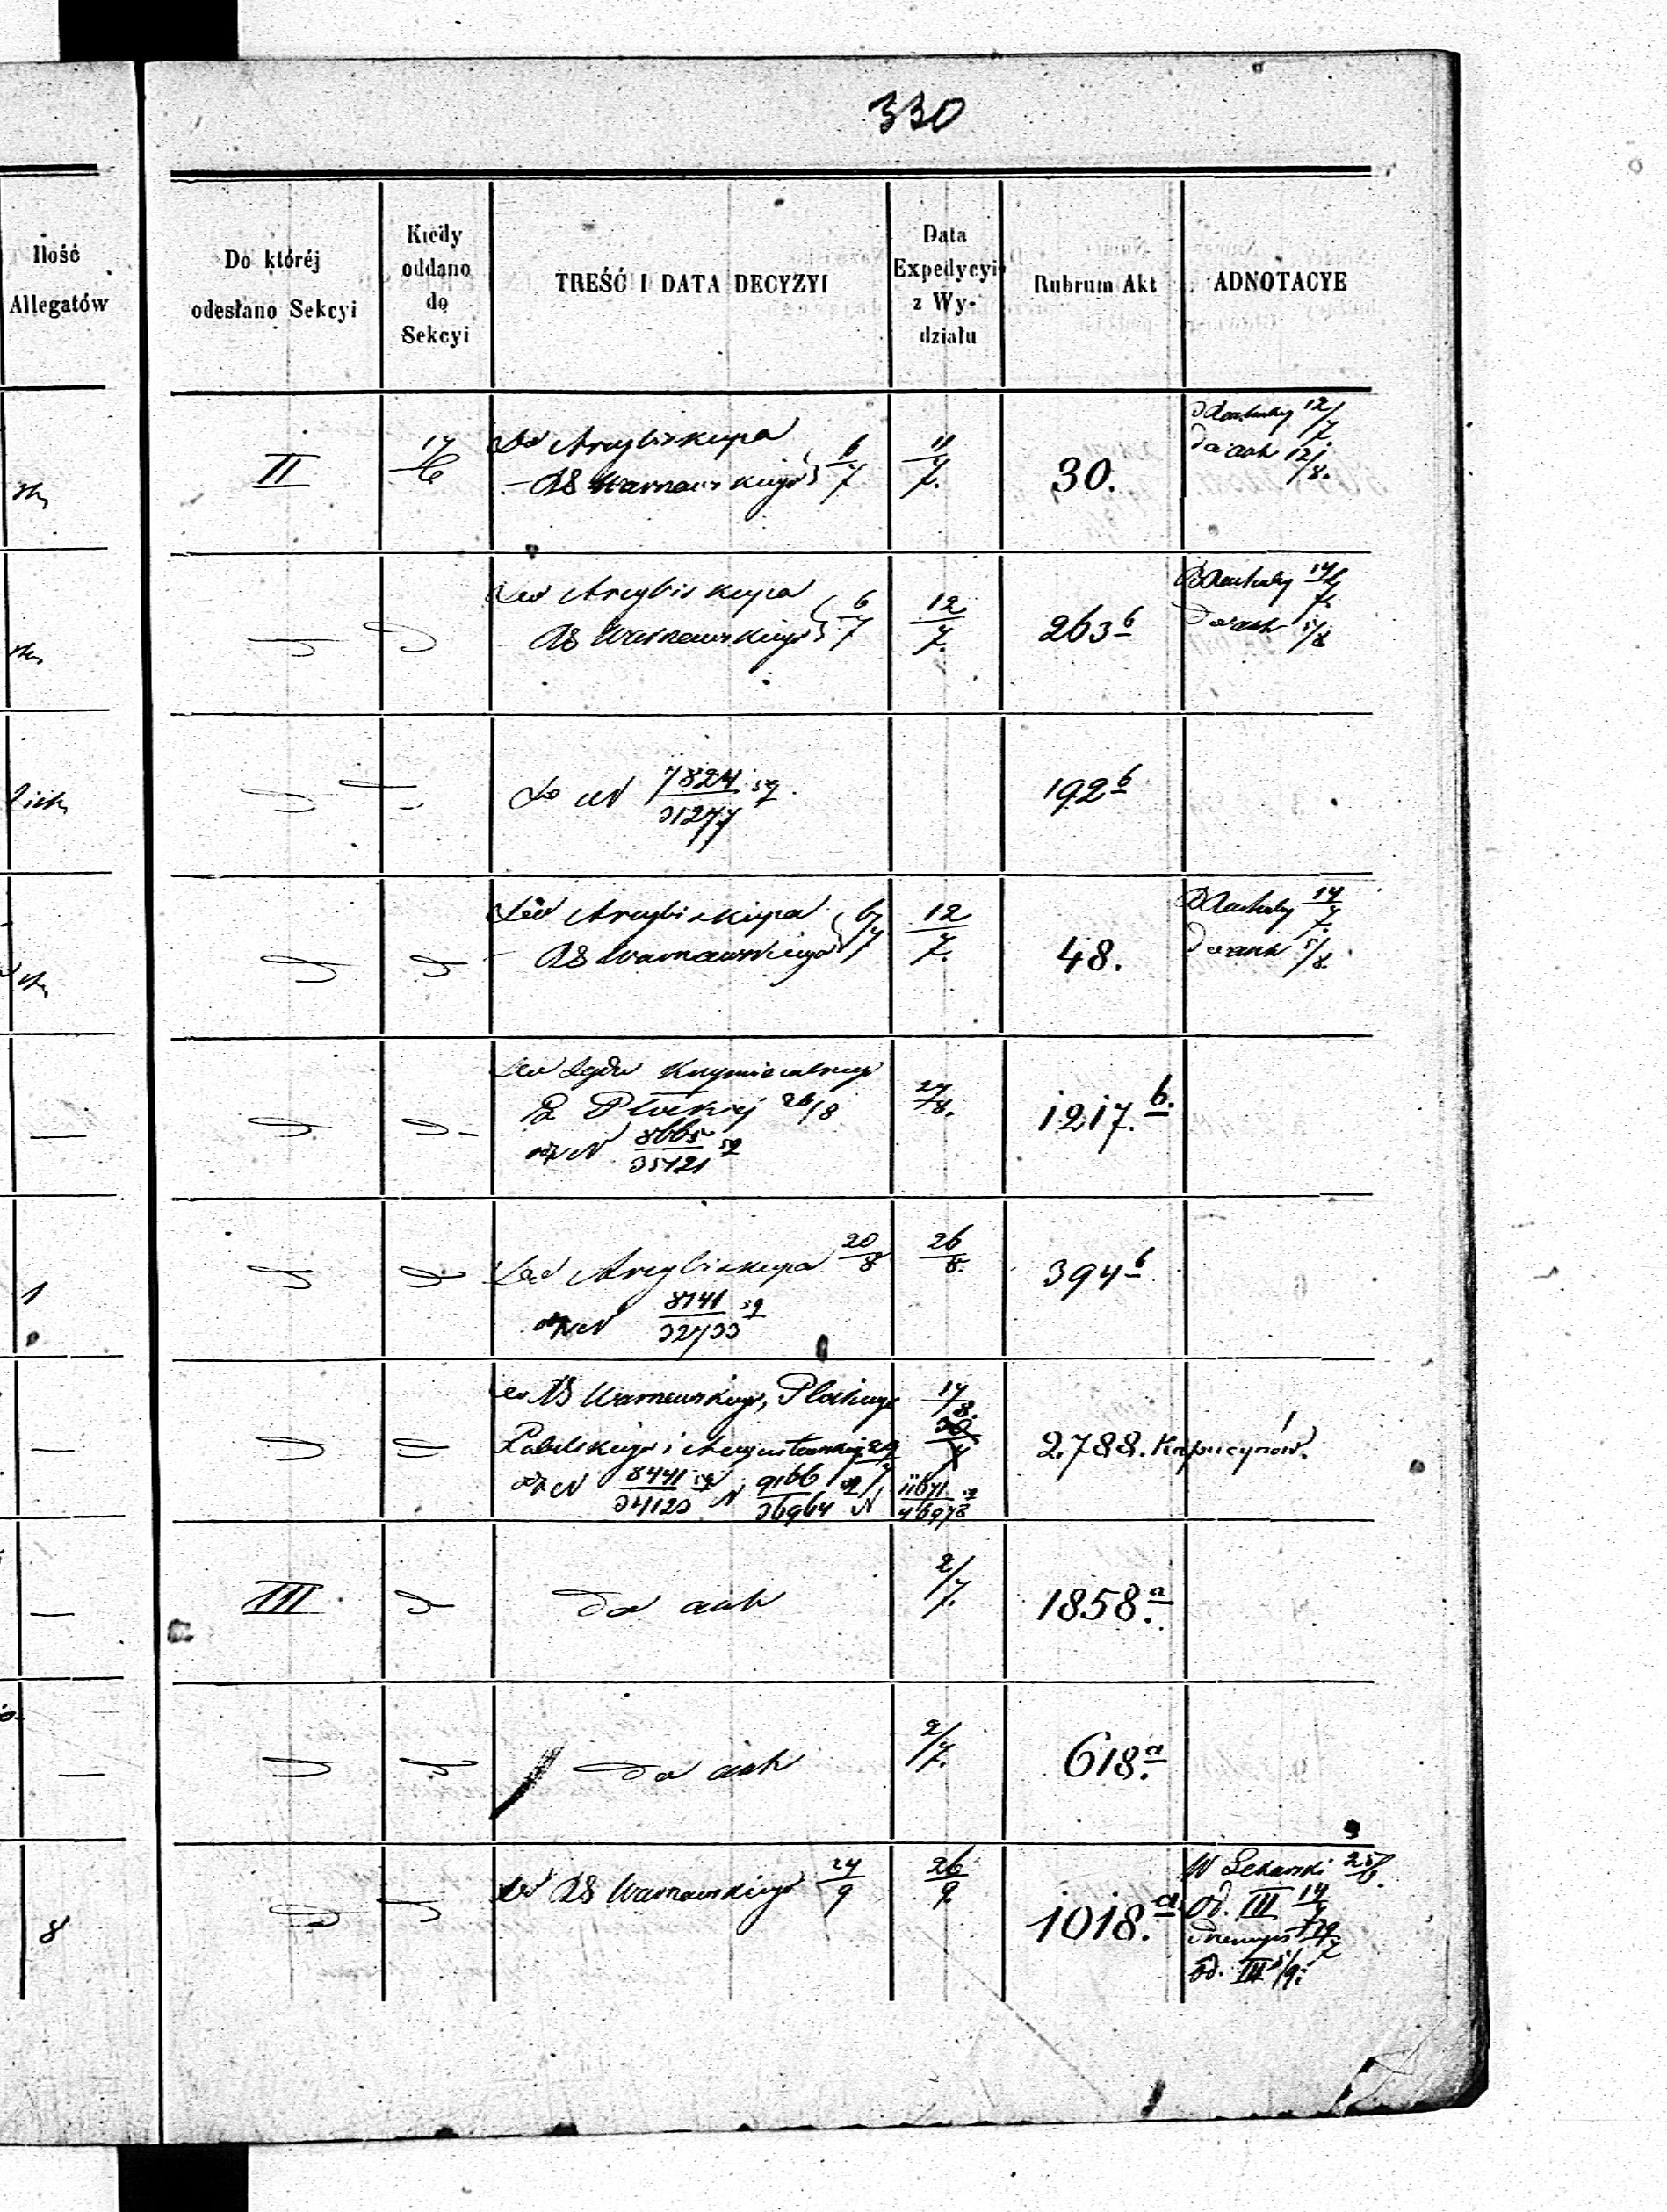 330
Ilość
Allegatów
Do któréj
odesłano Sekcyi
Kiedy
oddano
do
Sekcyi
TREŚĆ I DATA DECYZYI
Data
Expedycyi
z Wy-
działu
Rubrum Akt
ADNOTACYE
II
17/6
Do Arcybiskupa
RG Warszawskiego 6/7
11/7.
30.
12/7
do akt 12/8.
Do Arcybiskupa
RG Warszawskiego 6/7
12/7.
263 b
14/7
do akt 5/8
Do N 7824/31277
192 b
Do Arcybiskupa
RG Warszawskiego 6/7
12/7.
48.
14/7
do akt 5/8.
Do Sądu Kryminalnego
Płockiej 26/8
N 8665/35121
27/8.
1217. b.
1
Do Arcybiskupa 20/8
N 8141/32733
26/8.
394 b
do RG Warszawskiego, Płockiego
Lubelskiego i Augustowskiego 29/7
N 8441/34123 N 9166/36964 N 11671/46978
17/8.
2788. Kapucynów.
III
do akt
2/7.
1858. a
do akt
2/7.
618. a
8
do RG Warszawskiego 24/9
26/9.
1018. a
W Sekarski 25/6.
Od. III 14/7
Od. III